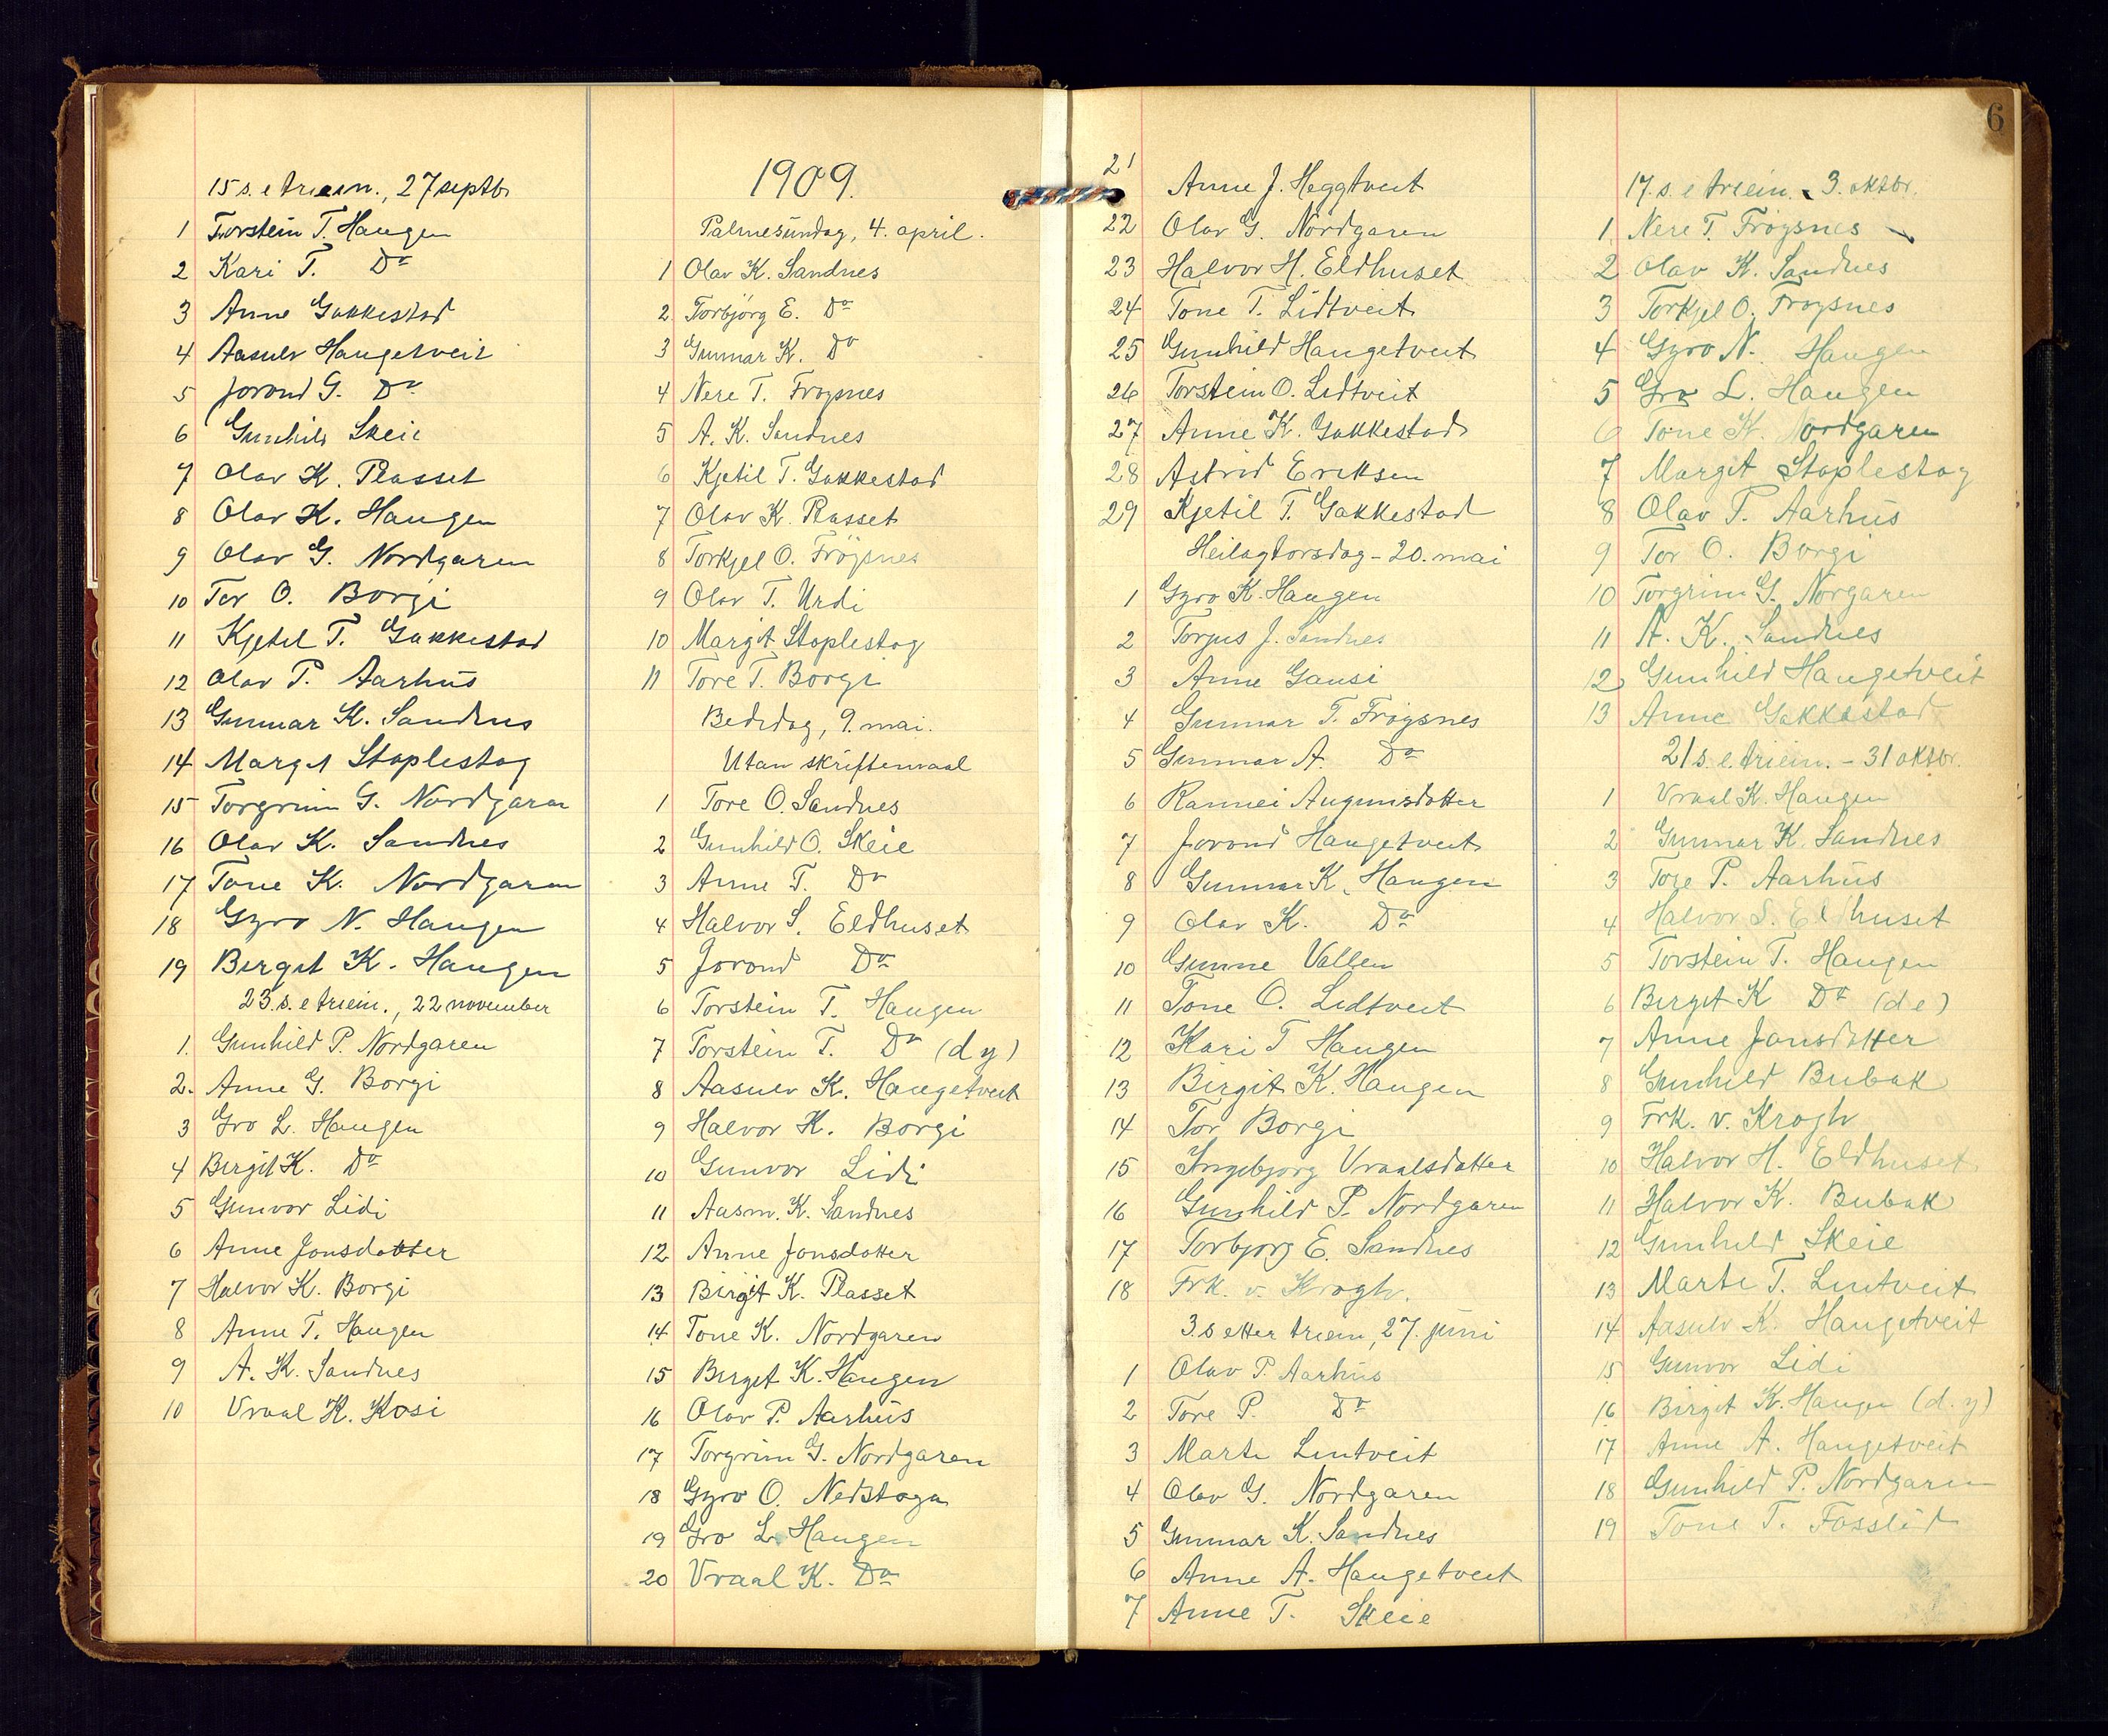 15 s. e triein., 27 septbr
1 Torstein T. Haugen
2 Kari T. Do
3 Anne Gakkestad
4 Aasulv Haugetveit
5 Jorond G. Do
6 Gunhild Skeie
7 Olav K. Plasset
8 Olav K. Haugen
9 Olav G. Nordgaren
10 Tor O. Borgi
11 Kjetil T. Gakkestad
12 Olav P. Aarhus
13 Gunnar K. Sandnes
14 Margit Staplestog
15 Torgrim G. Nordgaren
16 Olav K. Sandnes
17 Tone K. Nordgaren
18 Gyro N. Haugen
19 Birgit K. Haugen
23. s. e triein., 22 november
1. Gunhild P. Nordgaren
2. Anne G. Borgi
3 Gro L. Haugen
4 Birgit K. Do
5 Gunvor Lidi
6 Anne Jonsdotter
7 Halvor K. Borgi
8 Anne T. Haugen
9 A. K. Sandnes
10 Vraal K. Kosi
1909.
Palmesundag, 4. april.
1 Olav K. Sandnes
2 Torbjörg E. Do
3 Gunnar K. Do
4 Nere T. Froysnes
5 A. K. Sandnes
6 Kjetil T. Gakkestad
7 Olav K. Plasset
8 Torkjel O. Fröysnes
9 Olav T. Urdi
10 Margit Staplestog
11 Tore T. Borgi
Bededag, 9. mai.
Utan skriftemaal
1 Tore O. Sandnes
2 Gunhild O. Skeie
3 Anne T. Do
4 Halvor S. Eldhuset
5 Jorond Do
6 Torstein T. Haugen
7 Torstein T. Do (d y)
8 Aasulv K. Haugetveit
9 Halvor K. Borgi
10 Gunvor Lidi
11 Aasm. K. Sandnes
12 Anne Jonsdotter
13 Birgit K. Plasset
14 Tone K. Nordgaren
15 Birgit K. Haugen
16 Olav P. Aarhus
17 Torgrim G. Nordgaren
18 Gyro O. Nedstoga
19 Gro L. Haugen
20 Vraal K. Do
21 Anne J. Heggtveit
22 Olav G. Nordgaren
23 Halvor H. Eldhuset
24 Tone T. Lidtveit
25 Gunhild Haugetveit
26 Torstein O. Lidtveit
27 Anne K. Gakkestad
28 Astrid Eriksen
29 Kjetil T. Gakkestad
Heilagtorsdag - 20. mai
1 Gyro K. Haugen
2 Torjus J. Sandnes
3 Anne Gausi
4 Gunnar T. Froysnes
5 Gunnar A. Do
6 Rannei Augunsdotter
7 Jorond Haugetveit
8 Gunnar K. Haugen
9 Olav K. Do
10 Gunne Vallen
11 Tone O. Lidtveit
12 Kari T Haugen
13 Birgit K. Haugen
14 Tor Borgi
15 Ingebjorg Vraalsdotter
16 Gunhild P. Nordgaren
17 Torbjorg E. Sandnes
18 Frk. v. Krogh.
3. s etter triein, 27. juni
1 Olav P. Aarhus
2 Tore P. Do
3 Marte Lintveit
4 Olav G. Nordgaren
5 Gunnar K. Sandnes
6 Anne A. Haugetveit
7 Anne T. Skeie
6
17. s. e triein. 3. oktbr.
1. Nere T. Froysnes
2 Olav K. Sandnes
3 Torkjel O. Froysnes
4 Gyro N. Haugen
5 Gro L. Haugen
6 Tone K. Nordgaren
7 Margit Staplestog
8 Olav P. Aarhus
9 Tor O. Borgi
10 Torgrim G. Norgaren
11 A. K. Sandnes
12 Gunhild Haugetveit
13 Anne Gakkestad
21 s. e. triein. - 31 oktbr.
1 Vraal K. Haugen
2 Gunnar K. Sandnes
3 Tore P. Aarhus
4 Halvor S. Eldhuset
5 Torstein T. Haugen
6 Birgit K Do (d e)
7 Anne Jonsdotter
8 Gunhild Bubak
9 Frk. v. Krogh
10 Halvor H. Eldhuset
11 Halvor K. Bubak
12 Gunhild Skeie
13 Marte T. Lintveit
14 Aasulv K. Haugetveit
15 Gunvor Lidi
16 Birgit K. Haugen (d. y)
17 Anne A. Haugetveit
18 Gunhild P. Nordgaren
19 Tone T. Fosslid